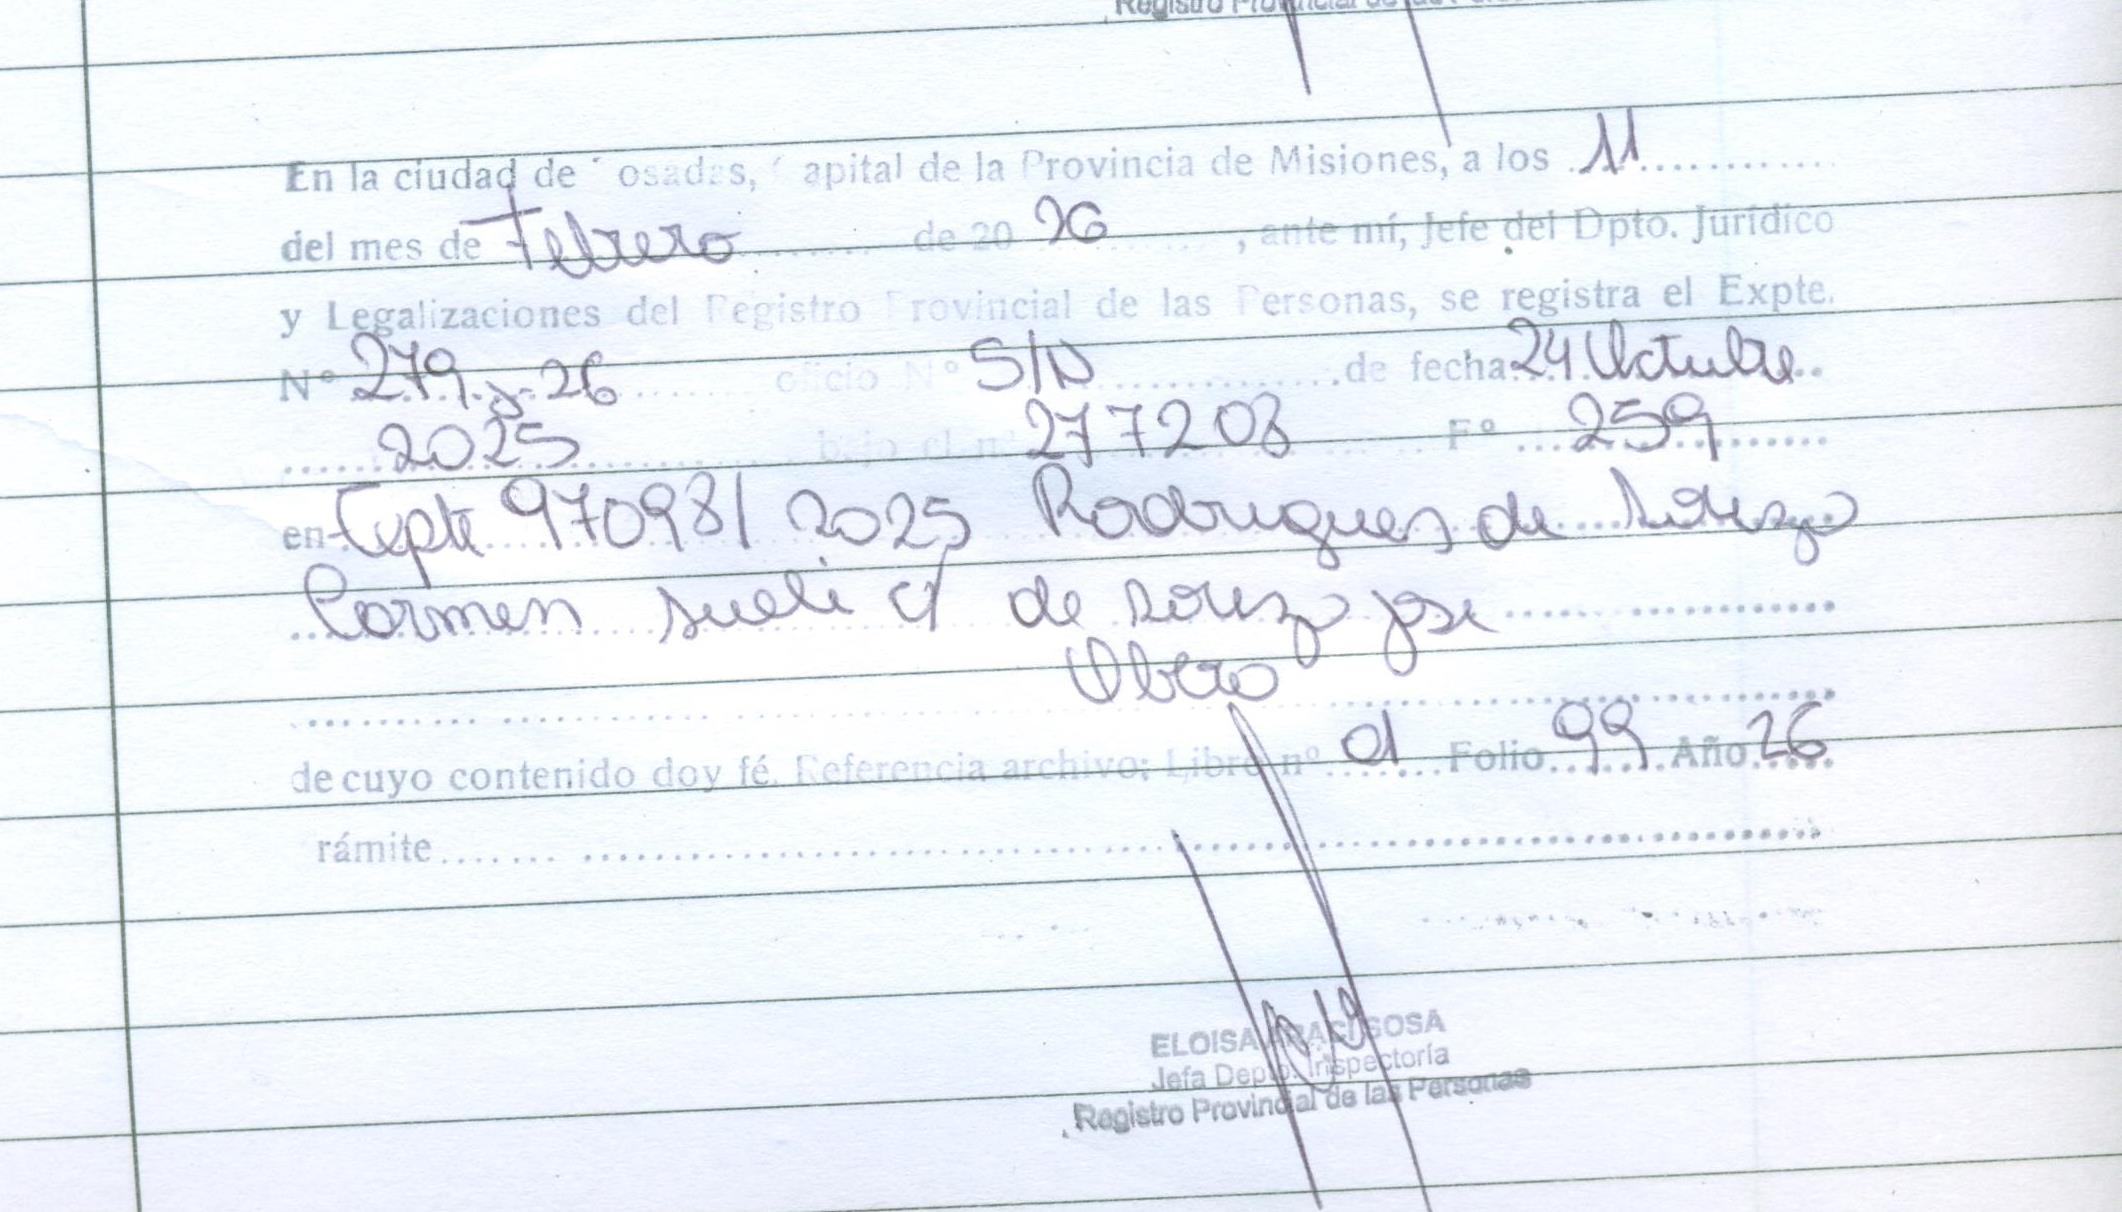 Registro Provincial de las Personas
En la ciudad de osadas, apital de la Provincia de Misiones, a los 11
del mes de Febrero de 20 26, ante mí, Jefe del Dpto. Jurídico
y Legalizaciones del Registro Provincial de las Personas, se registra el Expte.
Nº 279 26 oficio Nº S/N de fecha 24 Octubre
2025 bajo el nº 277208 Fº 259
en Expte 97098/2025 Rodrigues de Souza
Carmen sueli c/ de Souza jose
Obera
de cuyo contenido doy fé. Referencia archivo: Libro nº 01 Folio 99 Año 26
rámite
ELOISA SOSA
Jefa Depto. Inspectoría
Registro Provincial de las Personas